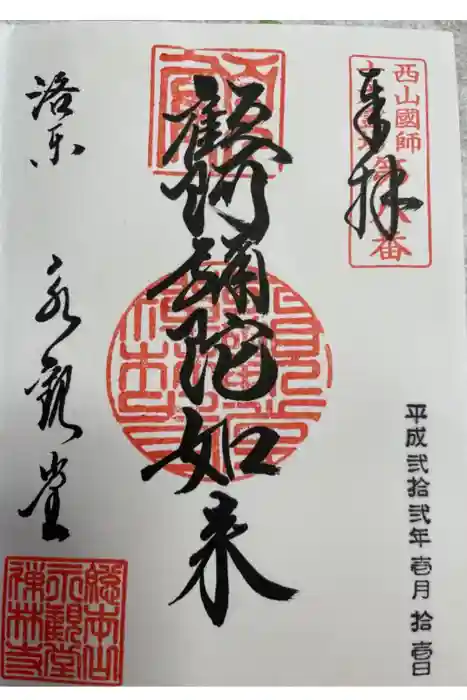 奉拝
西山國師
第八番
平成弐拾弐年壱月拾壱日
顧阿彌陀如来
洛東 永觀堂
總本山
永觀堂
禅林寺